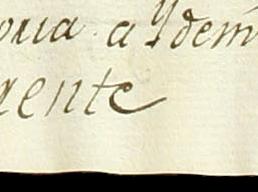 oria a y dem
gente